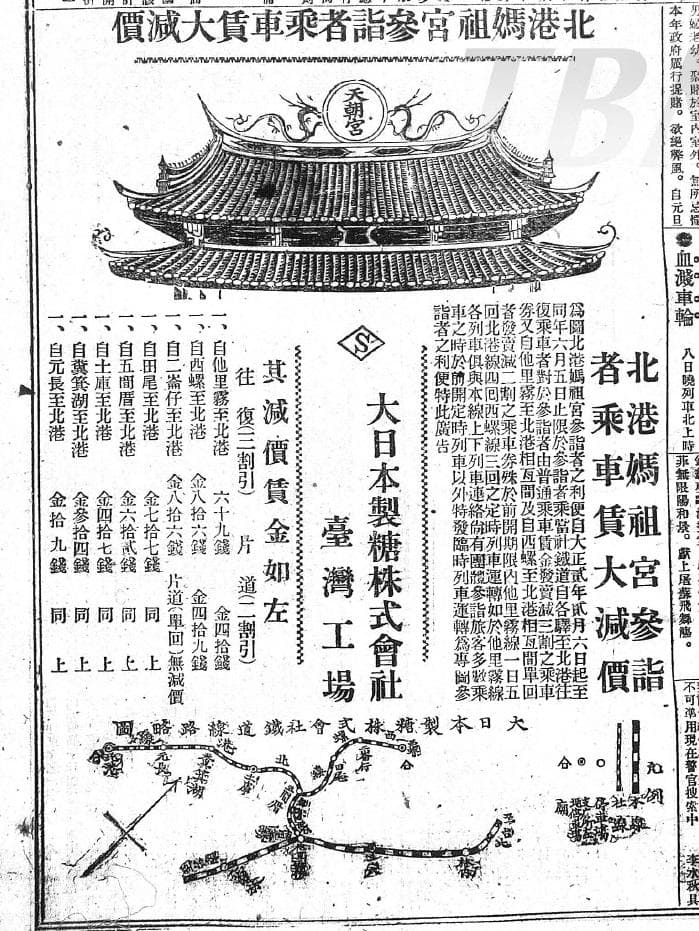 北港媽祖宮參詣者乘車賃大減價
天朝宮
北港媽祖宮參詣
者乘車賃大減價
為圖北港媽祖宮參詣者之利便自大正貳年貳月六日起至
同年六月五日止限於參詣者乘當社鐵道自各驛至北港往
復乘車者對於參詣者由普通乘車賃金發賣減三割之乘車
券又自他里霧至北港相互間及自西螺至北港相互間單回
者發賣減二割之乘車券殊於前開期限內他里霧線一日五
回北港線四回西螺線三回之定時列車運轉如於他里霧線
各列車俱與本線上下列車連絡倘有團體參詣旅客多數乘
車之時於前開定時列車以外特發臨時列車運轉為專圖參
詣者之利便特此廣告
S
大日本製糖株式會社
臺灣工場
其減價賃金如左
往復(三割引) 片道(二割引)
一、自他里霧至北港 六十九錢 金四拾錢
一、自西螺至北港 金八拾六錢 金四拾九錢
一、自二崙仔至北港 金八拾六錢 片道(單回)無減價
一、自田尾至北港 金七拾七錢 同上
一、自五間厝至北港 金六拾貳錢 同上
一、自土庫至北港 金四拾七錢 同上
一、自糞箕湖至北港 金參拾四錢 同上
一、自元長至北港 金拾九錢 同上
大日本製糖株式會社鐵道線路略圖
凡例
本線
社線
停車場
廟
本年政府厲行捉賭。欲絕弊風。自元旦
血濺車輪
八日晚列車北上時
非無限陽和景。獻上屠蘇飛舞觴。
不可準用現在警官搜索中
TB